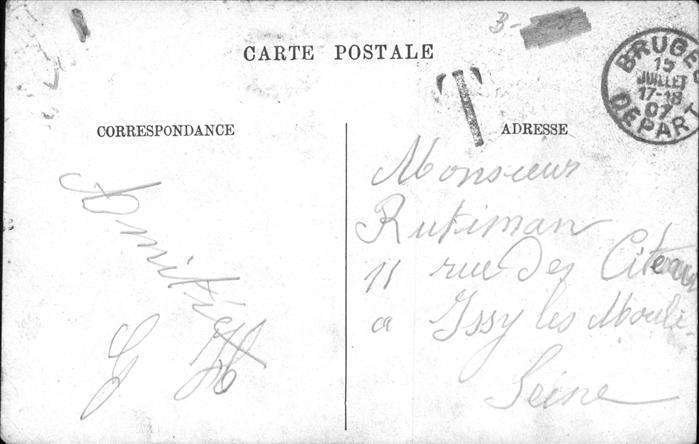 CARTE POSTALE
T
BRUGES
15
JUILLET
17-18
07
DEPART
CORRESPONDANCE
ADRESSE
Amitié
G H
Monsieur
Rutiman
11 rue des
a Issy les Mouli
Seine